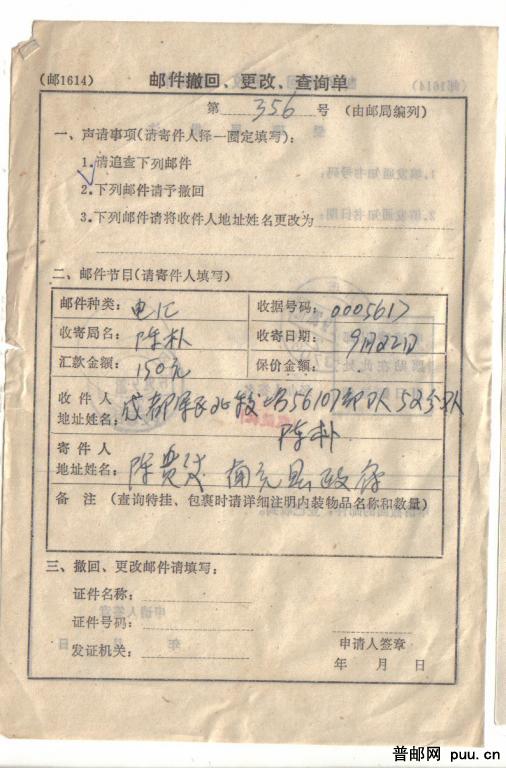 (邮1614)
邮件撤回、更改、查询单
第 356 号 (由邮局编列)
一、声请事项(请寄件人择一圈定填写):
1.请追查下列邮件
2.下列邮件请予撤回
3.下列邮件请将收件人地址姓名更改为
二、邮件节目(请寄件人填写)
邮件种类: 电汇 收据号码: 0005617
收寄局名: 陈朴 收寄日期: 9月22日
汇款金额: 150元 保价金额:
收件人
地址姓名: 成都军区 56107部队52分队
陈朴
寄件人
地址姓名: 陈贵 南充县政府
备 注 (查询特挂、包裹时请详细注明内装物品名称和数量)
三、撤回、更改邮件请填写:
证件名称:
证件号码:
发证机关:
申请人签章
年 月 日
普邮网 puu.cn